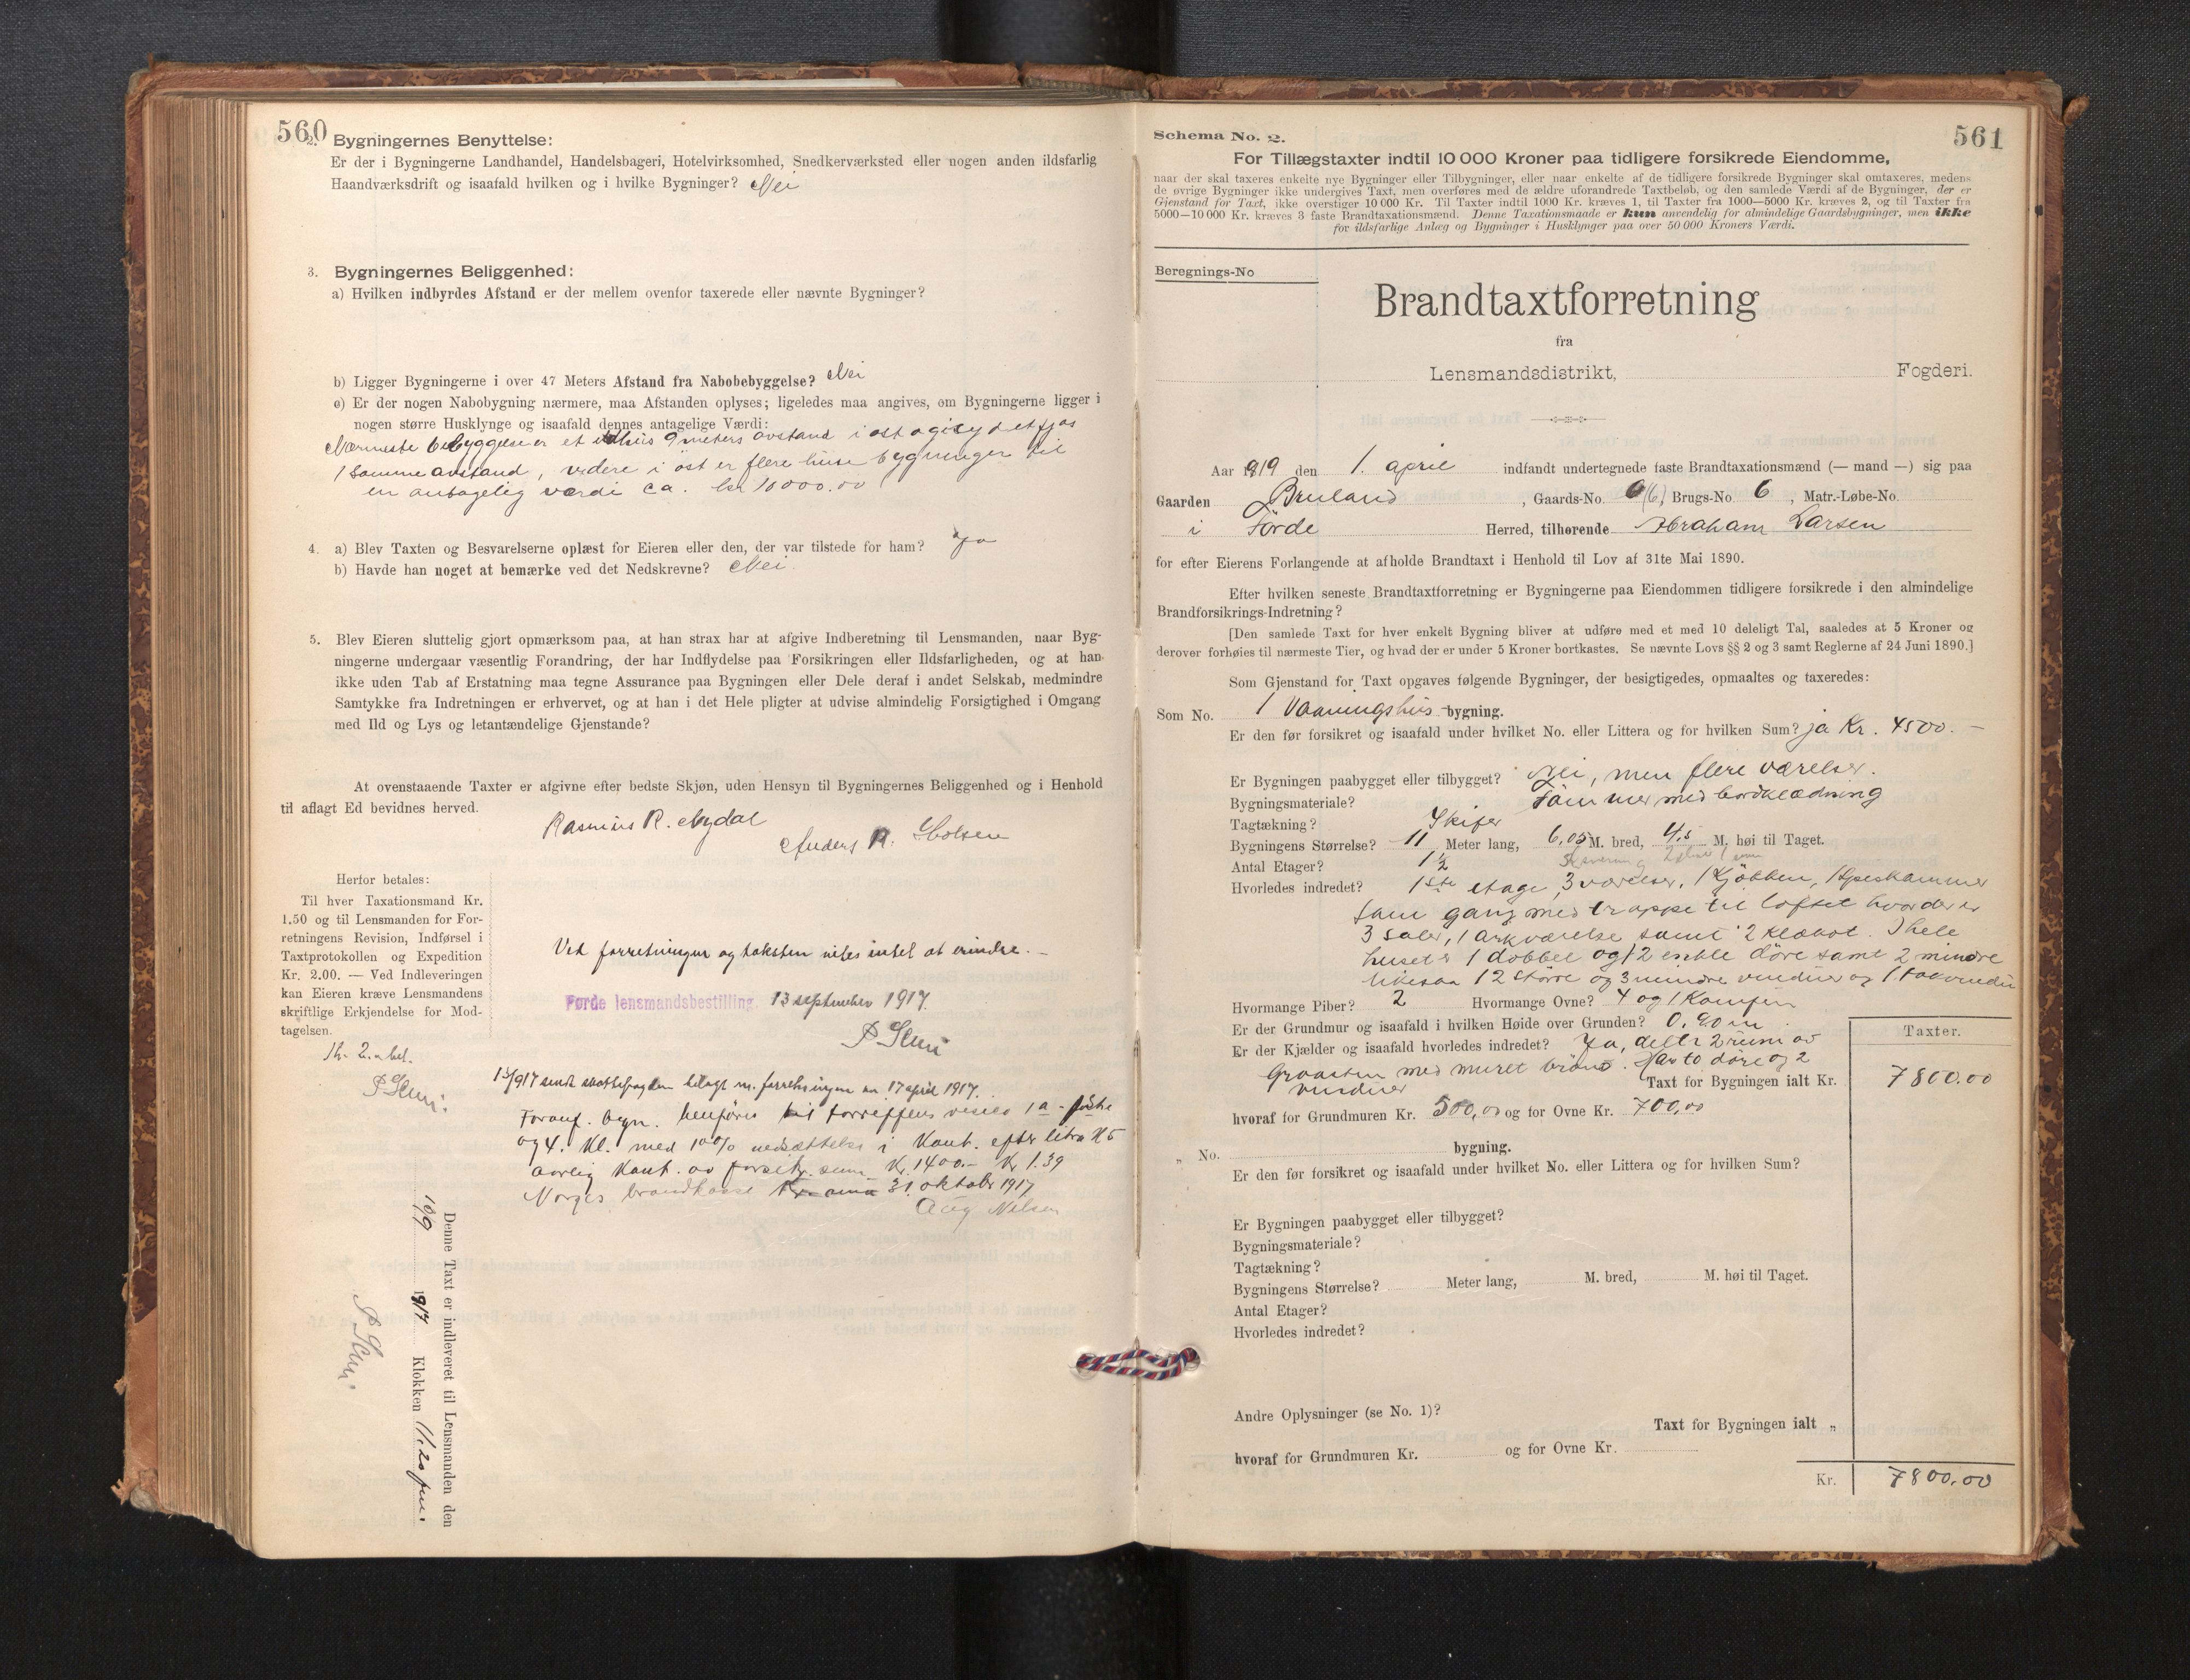 560
2. Bygningernes Benyttelse:
Er der i Bygningerne Landhandel, Handelsbageri, Hotelvirksomhed, Snedkerværksted eller nogen anden ildsfarlig
Haandværksdrift og isaafald hvilken og i hvilke Bygninger? Nei
3. Bygningernes Beliggenhed:
a) Hvilken indbyrdes Afstand er der mellem ovenfor taxerede eller nævnte Bygninger?
b) Ligger Bygningerne i over 47 Meters Afstand fra Nabobebyggelse? Nei
c) Er der nogen Nabobygning nærmere, maa Afstanden oplyses; ligeledes maa angives, om Bygningerne ligger i
nogen større Husklynge og isaafald dennes antagelige Værdi:
Nærmeste bebyggelse er et uthus 9 meters avstand i ost og i syd et fjøs
i samme avstand, videre i öst er flere huse bygninger til
en antagelig værdi ca. kr 10000.00
4. a) Blev Taxten og Besvarelserne oplæst for Eieren eller den, der var tilstede for ham? Ja
b) Havde han noget at bemærke ved det Nedskrevne? Nei.
5. Blev Eieren sluttelig gjort opmærksom paa, at han strax har at afgive Indberetning til Lensmanden, naar Byg-
ningerne undergaar væsentlig Forandring, der har Indflydelse paa Forsikringen eller Ildsfarligheden, og at han
ikke uden Tab af Erstatning maa tegne Assurance paa Bygningen eller Dele deraf i andet Selskab, medmindre
Samtykke fra Indretningen er erhvervet, og at han i det Hele pligter at udvise almindelig Forsigtighed i Omgang
med Ild og Lys og letantændelige Gjenstande?
At ovenstaaende Taxter er afgivne efter bedste Skjøn, uden Hensyn til Bygningernes Beliggenhed og i Henhold
til aflagt Ed bevidnes herved.
Rasmus R. Nydal
Anders A. Holsen
Herfor betales:
Til hver Taxationsmand Kr.
1.50 og til Lensmanden for For-
retningens Revision, Indførsel i
Taxtprotokollen og Expedition
Kr. 2.00. — Ved Indleveringen
kan Eieren kræve Lensmandens
skriftlige Erkjendelse for Mod-
tagelsen.
Kr. 2. bet.
Ved forretningen og taksten vites intet at erindre. —
Førde lensmandsbestilling, 13 september 1917.
13/9 17 sendt m. forretningen av 17 april 1917.
Foranf. bygn. henføres til
og 4. Kl. med 10% nedsættelse i Kont. efter litra H 5
aarlig Kont. av forsikr. sum Kr. 1400.- Kr. 1.39
Norges brandkasse 31. oktober 1917
Aug Nilsen
Denne Taxt er indleveret til Lensmanden den
10/9 1917 Klokken 11,20 fm.
561
Schema No. 2.
For Tillægstaxter indtil 10 000 Kroner paa tidligere forsikrede Eiendomme,
naar der skal taxeres enkelte nye Bygninger eller Tilbygninger, eller naar enkelte af de tidligere forsikrede Bygninger skal omtaxeres, medens
de øvrige Bygninger ikke undergives Taxt, men overføres med de ældre uforandrede Taxtbeløb, og den samlede Værdi af de Bygninger, der er
Gjenstand for Taxt, ikke overstiger 10 000 Kr. Til Taxter indtil 1000 Kr. kræves 1, til Taxter fra 1000—5000 Kr. kræves 2, og til Taxter fra
5000—10 000 Kr. kræves 3 faste Brandtaxationsmænd. Denne Taxationsmaade er kun anvendelig for almindelige Gaardsbygninger, men ikke
for ildsfarlige Anlæg og Bygninger i Husklynger paa over 50 000 Kroners Værdi.
Beregnings-No
Brandtaxtforretning
fra
Lensmandsdistrikt, Fogderi.
Aar 1919 den 1. april indfandt undertegnede faste Brandtaxationsmænd (— mand —) sig paa
Gaarden Bruland, Gaards-No. 6 (6), Brugs-No. 6, Matr.-Løbe-No.
i Förde Herred, tilhørende Abraham Larsen
for efter Eierens Forlangende at afholde Brandtaxt i Henhold til Lov af 31te Mai 1890.
Efter hvilken seneste Brandtaxtforretning er Bygningerne paa Eiendommen tidligere forsikrede i den almindelige
Brandforsikrings-Indretning?
[Den samlede Taxt for hver enkelt Bygning bliver at udføre med et med 10 deleligt Tal, saaledes at 5 Kroner og
derover forhøies til nærmeste Tier, og hvad der er under 5 Kroner bortkastes. Se nævnte Lovs §§ 2 og 3 samt Reglerne af 24 Juni 1890.]
Som Gjenstand for Taxt opgaves følgende Bygninger, der besigtigedes, opmaaltes og taxeredes:
Som No. 1 Vaaningshus-bygning.
Er den før forsikret og isaafald under hvilket No. eller Littera og for hvilken Sum? ja Kr. 4500.—
Er Bygningen paabygget eller tilbygget? Nei, men flere værelser.
Bygningsmateriale? Tömmer med bordklædning
Tagtækning? Skifer
Bygningens Størrelse? 11 Meter lang, 6,05 M. bred, 4,5 M. høi til Taget.
Antal Etager? 1 1/2
Hvorledes indredet? 1ste etage, 3 værelser, 1 kjökken, 1 speskammer
samt gang med trappe til loftet hvor der er
3 saler, 1 arkværelse samt 2 kleskot. I hele
huset er 1 dobbel og 12 enkle döre samt 2 mindre
likesaa 12 större og 3 mindre vinduer og 1 takvindu
Hvormange Piber? 2 Hvormange Ovne? 4 og 1 Komfyr
Er der Grundmur og isaafald i hvilken Høide over Grunden? 0,90 m
Er der Kjælder og isaafald hvorledes indredet? Ja, delt i 2 rum av
graasten med muret brönd. Har to döre og 2
vinduer
Taxter.
Taxt for Bygningen ialt Kr. 7800.00
hvoraf for Grundmuren Kr. 500,00 og for Ovne Kr. 700,00
„ No. bygning.
Er den før forsikret og isaafald under hvilket No. eller Littera og for hvilken Sum?
Er Bygningen paabygget eller tilbygget?
Bygningsmateriale?
Tagtækning?
Bygningens Størrelse? Meter lang, M. bred, M. høi til Taget.
Antal Etager?
Hvorledes indredet?
Andre Oplysninger (se No. 1)?
Taxt for Bygningen ialt „
hvoraf for Grundmuren Kr. og for Ovne Kr.
Kr. 7800,00